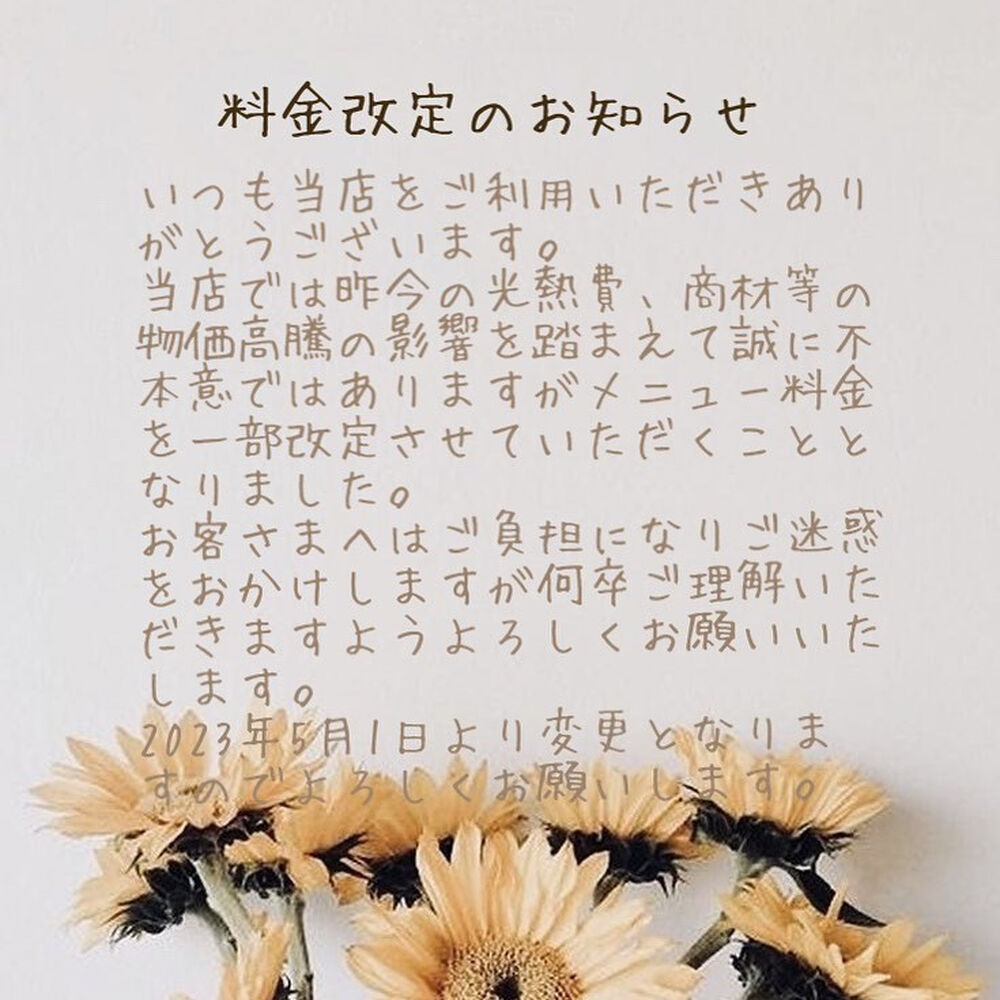 料金改定のお知らせ
いつも当店をご利用いただきあり
がとうございます。
当店では昨今の光熱費、商材等の
物価高騰の影響を踏まえて誠に不
本意ではありますがメニュー料金
を一部改定させていただくことと
なりました。
お客さまへはご負担になりご迷惑
をおかけしますが何卒ご理解いた
だきますようよろしくお願いいた
します。
2023年5月1日より変更となりま
すのでよろしくお願いします。